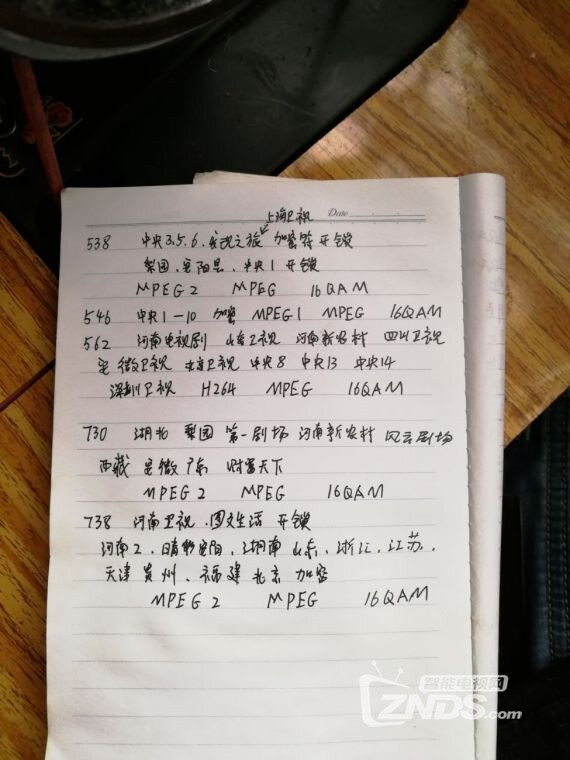 上海卫视 Date
538 中央3.5.6.发现之旅 加密待开锁
梨园.安阳县.中央1 开锁
MPEG2 MPEG 16QAM
546 中央1-10 加密 MPEG1 MPEG 16QAM
562 河南电视剧 山东卫视 河南新农村 四川卫视
安徽卫视 北京卫视 中央8 中央13 中央14
深圳卫视 H264 MPEG 16QAM
730 湖北 梨园 第一剧场 河南新农村 风云剧场
西藏 安徽 广东 财富天下
MPEG2 MPEG 16QAM
738 河南卫视.图文生活 开锁
河南2.睛彩安阳.湖南 山东.浙江.江苏.
天津 贵州.福建 北京 加密
MPEG2 MPEG 16QAM
智能电视网
ZNDS.com